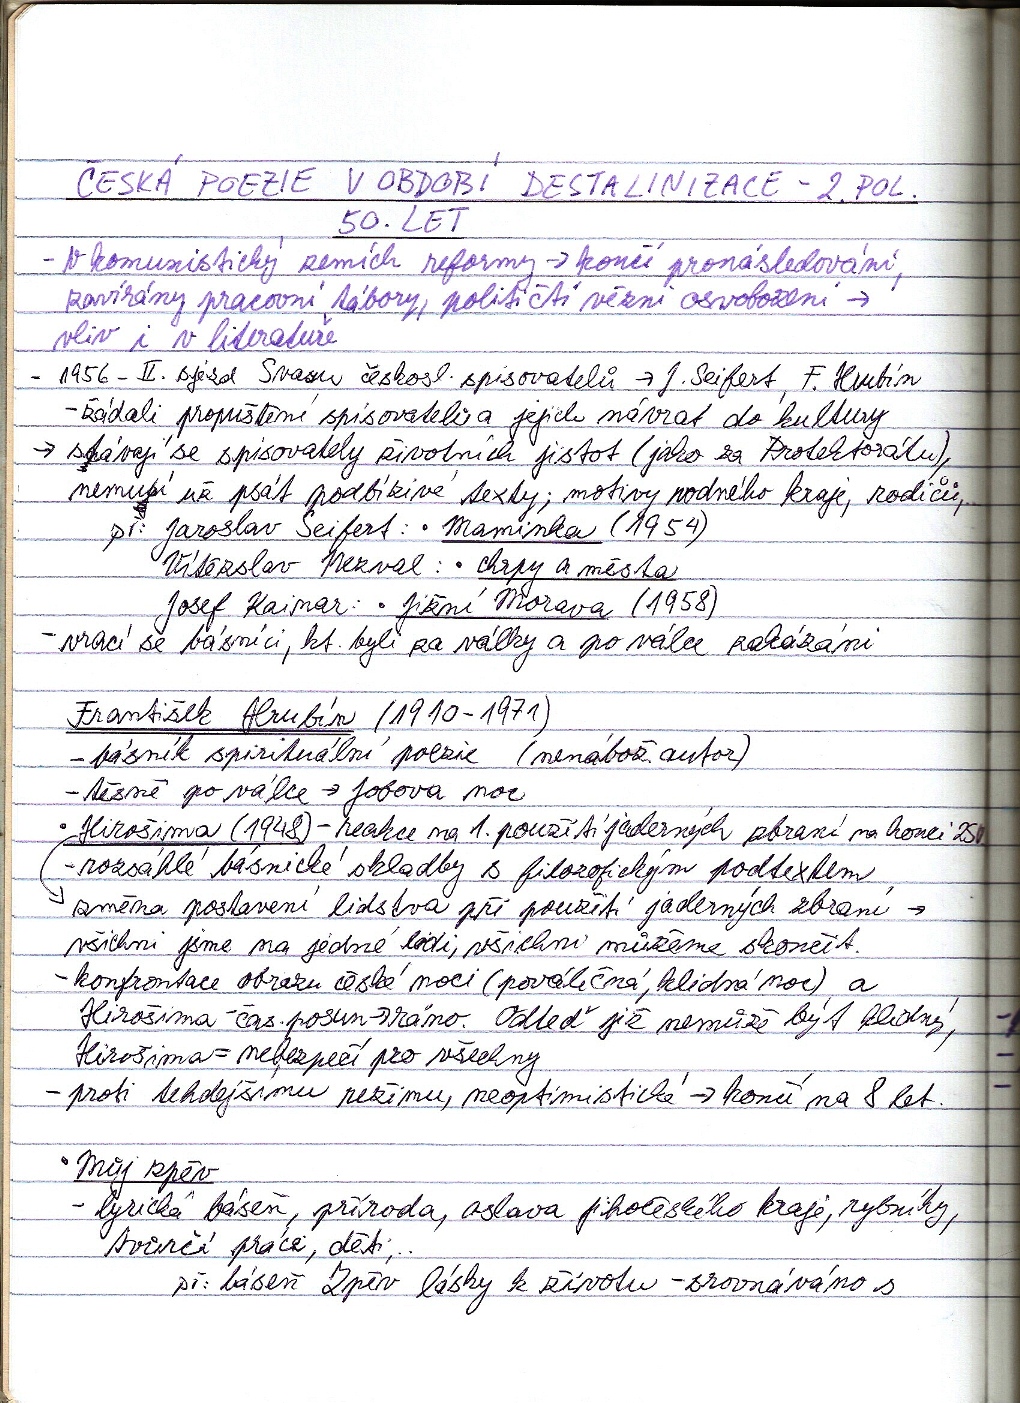 ČESKÁ POEZIE V OBDOBÍ DESTALINIZACE - 2. POL.
50. LET
- V komunistický zemích reformy → končí pronásledování,
zavírány pracovní tábory, političtí vězni osvobozeni →
vliv i v literatuře
- 1956 - II. sjezd Svazu českosl. spisovatelů → J. Seifert, F. Hrubín
- žádali propuštění spisovatelů a jejich návrat do kultury
→ stávají se spisovately životních jistot (jako za Protektorátu),
nemusí už psát podbízivé texty; motivy rodného kraje, rodičů,..
př: Jaroslav Seifert: • Maminka (1954)
Vítězslav Nezval: • chrpy a města
Josef Kainar: • Jižní Morava (1958)
- vrací se básníci, kt. byli za války a po válce zakázáni
František Hrubín (1910-1971)
- básník spirituální poezie (nenábož. autor)
- těsně po válce → Jobova noc
• Hirošima (1948) - reakce na 1. použití jaderných zbraní na konci 2SV
- rozsáhlé básnické skladby s filozofickým podtextem
změna postavení lidstva při použití jaderných zbraní →
všichni jsme na jedné lodi, všichni můžeme skončit.
- konfrontace obrazu české noci (poválečná, klidná noc) a
Hirošima - čas. posun → ráno. Odteď již nemůže být klidný,
Hirošima = nebezpečí pro všechny
- proti tehdejšímu režimu, neoptimistické → končí na 8 let.
• Můj zpěv
- lyrická báseň, příroda, oslava jihočeského kraje, rybníky,
tvůrčí práce, děti,..
př: báseň Zpěv lásky k životu - srovnáváno s